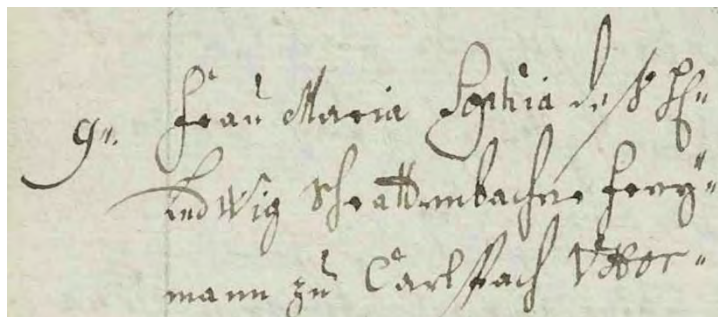 9. Frau Maria Sophia deß H:
Ludwig Schrattenbachers Frey=
mann zu Carlspach Uxor=